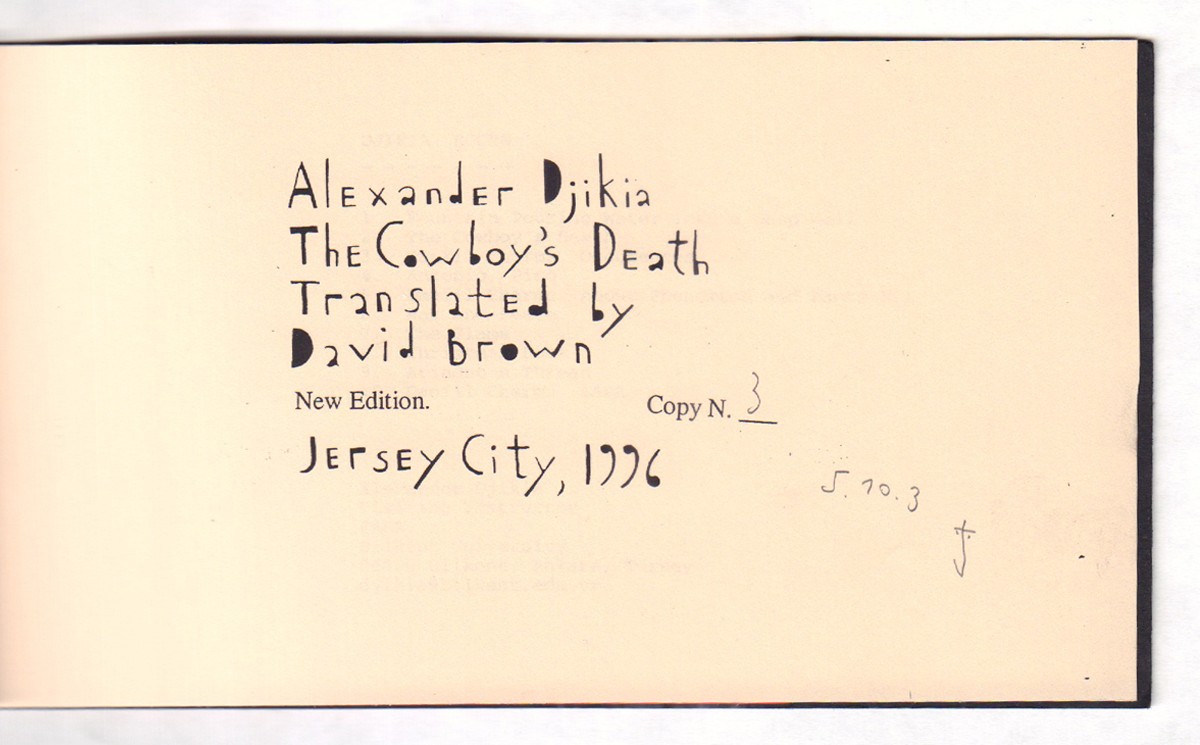 Alexander Djikia
The Cowboy's Death
Translated by
David Brown
New Edition. Copy N. 3
Jersey City, 1996
5.10.3